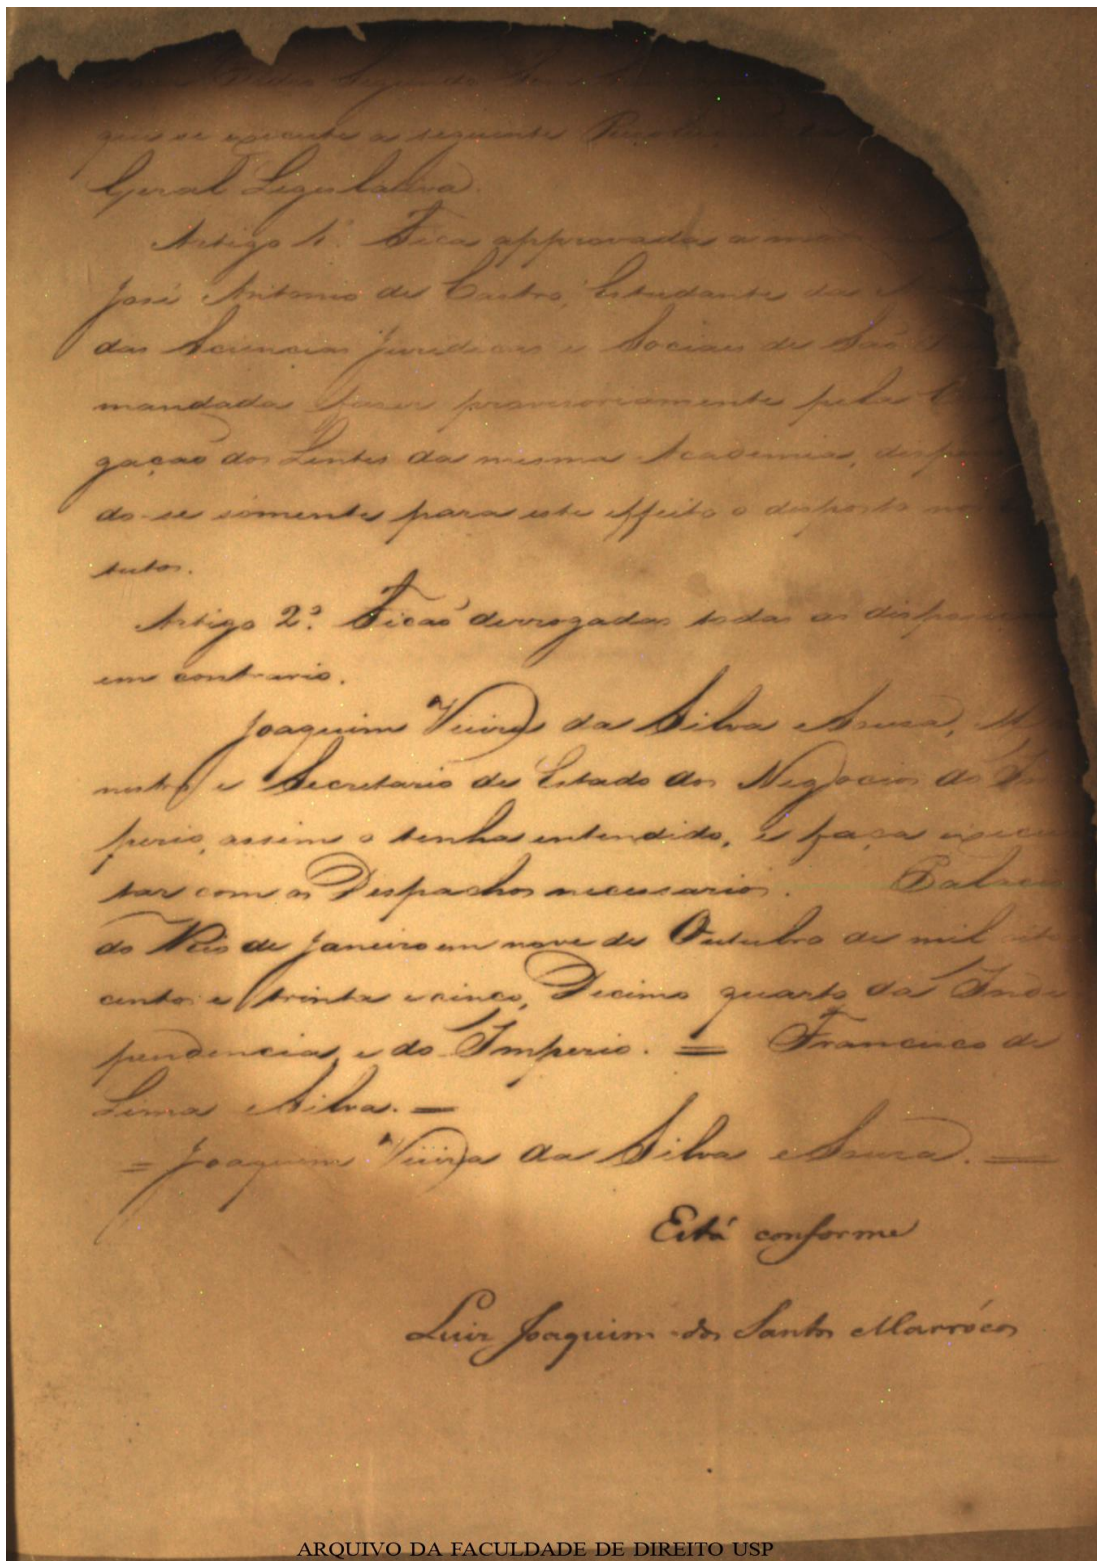 Dom Pedro Segundo
que se execute a seguinte Resolução
Geral Legislativa.
Artigo 1º. Fica approvada a ma
José Antonio de Castro, Estudante da A
das Sciencias Juridicas e Sociaes de São P
mandada fazer provisoriamente pela Con
gação dos Lentes da mesma Academia, dispen
do-se sómente para este effeito o disposto no
tutos.
Artigo 2º. Ficaõ derrogadas todas as disposiç
em contrario.
Joaquim Vieira da Silva e Sousa, Mi
nistro e Secretario de Estado dos Negocios do Im
perio, assim o tenha entendido, e faça execu
tar com os Despachos necessarios. Palacio
do Rio de Janeiro em nove de Outubro de mil oito
centos e trinta e cinco, Decimo quarto da Inde
pendencia, e do Imperio. = Francisco de
Lima e Silva. =
= Joaquim Vieira da Silva e Sousa. =
Está conforme
Luiz Joaquim dos Santos Marrócos
ARQUIVO DA FACULDADE DE DIREITO USP